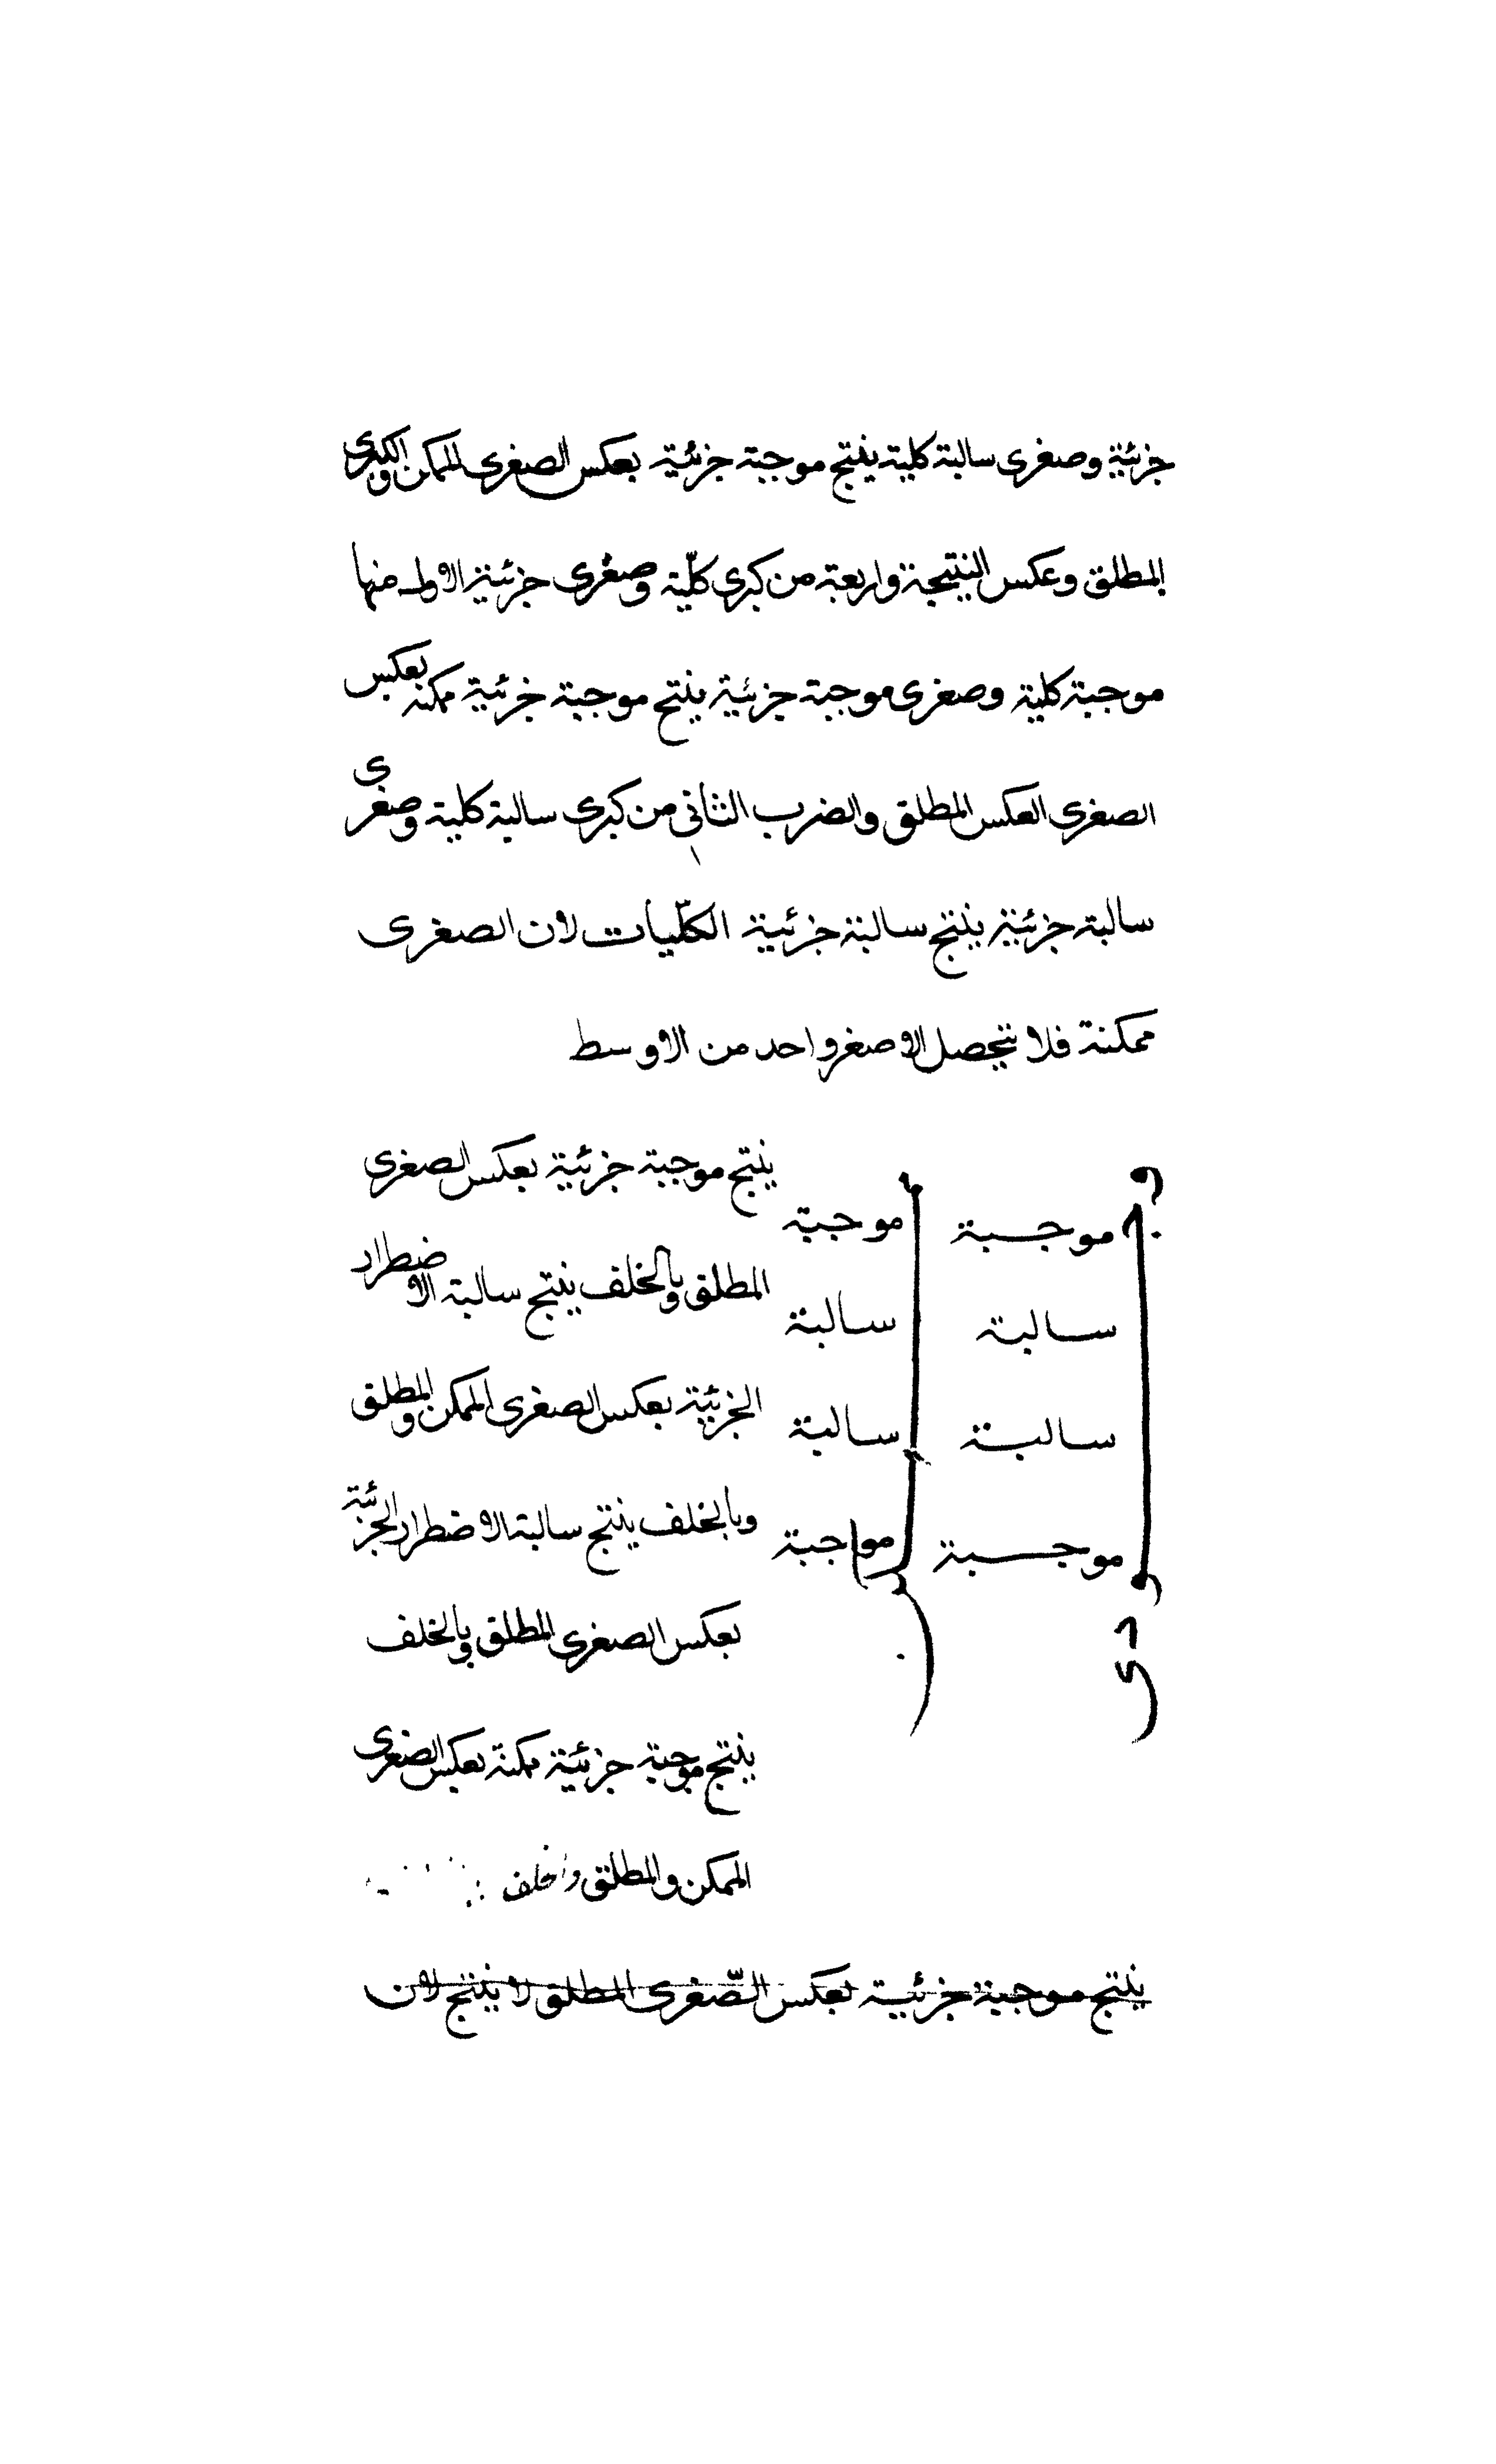 جزئية وصغرى سالبة كلية ينتج موجبة جزئية بعكس الصغرى الممكن والكبرى
المطلق وعكس النتيجة واربعة من كبرى كلّية وصغرى جزئية الاولى منها
موجبة كلية وصغرى موجبة جزئية ينتج موجبة جزئية ممكنه بعكس
الصغرى العكس المطلق والضرب الثاني من كبرى سالبة كلية وصغرى
سالبة جزئية ينتج سالبة جزئية الكلّيات لان الصغرى
ممكنة فلا تتحصل الاصغر واحد من الاوسط
ينتج موجبة جزئية بعكس الصغرى
موجبة موجبة
المطلق وبالخلف ينتج سالبة الاضطرار
سالبة سالبة
الجزئية بعكس الصغرى الممكن والمطلق
سالبة سالبة
وبالخلف ينتج سالبة الاضطرار الجزئية
موجبة موجبة
بعكس الصغرى المطلق وبالخلف
ينتج موجبة جزئية ممكنة بعكس الصغرى
الممكن والمطلق
ينتج موجبة جزئية بعكس الصّغرى المطلق لا ينتج لان